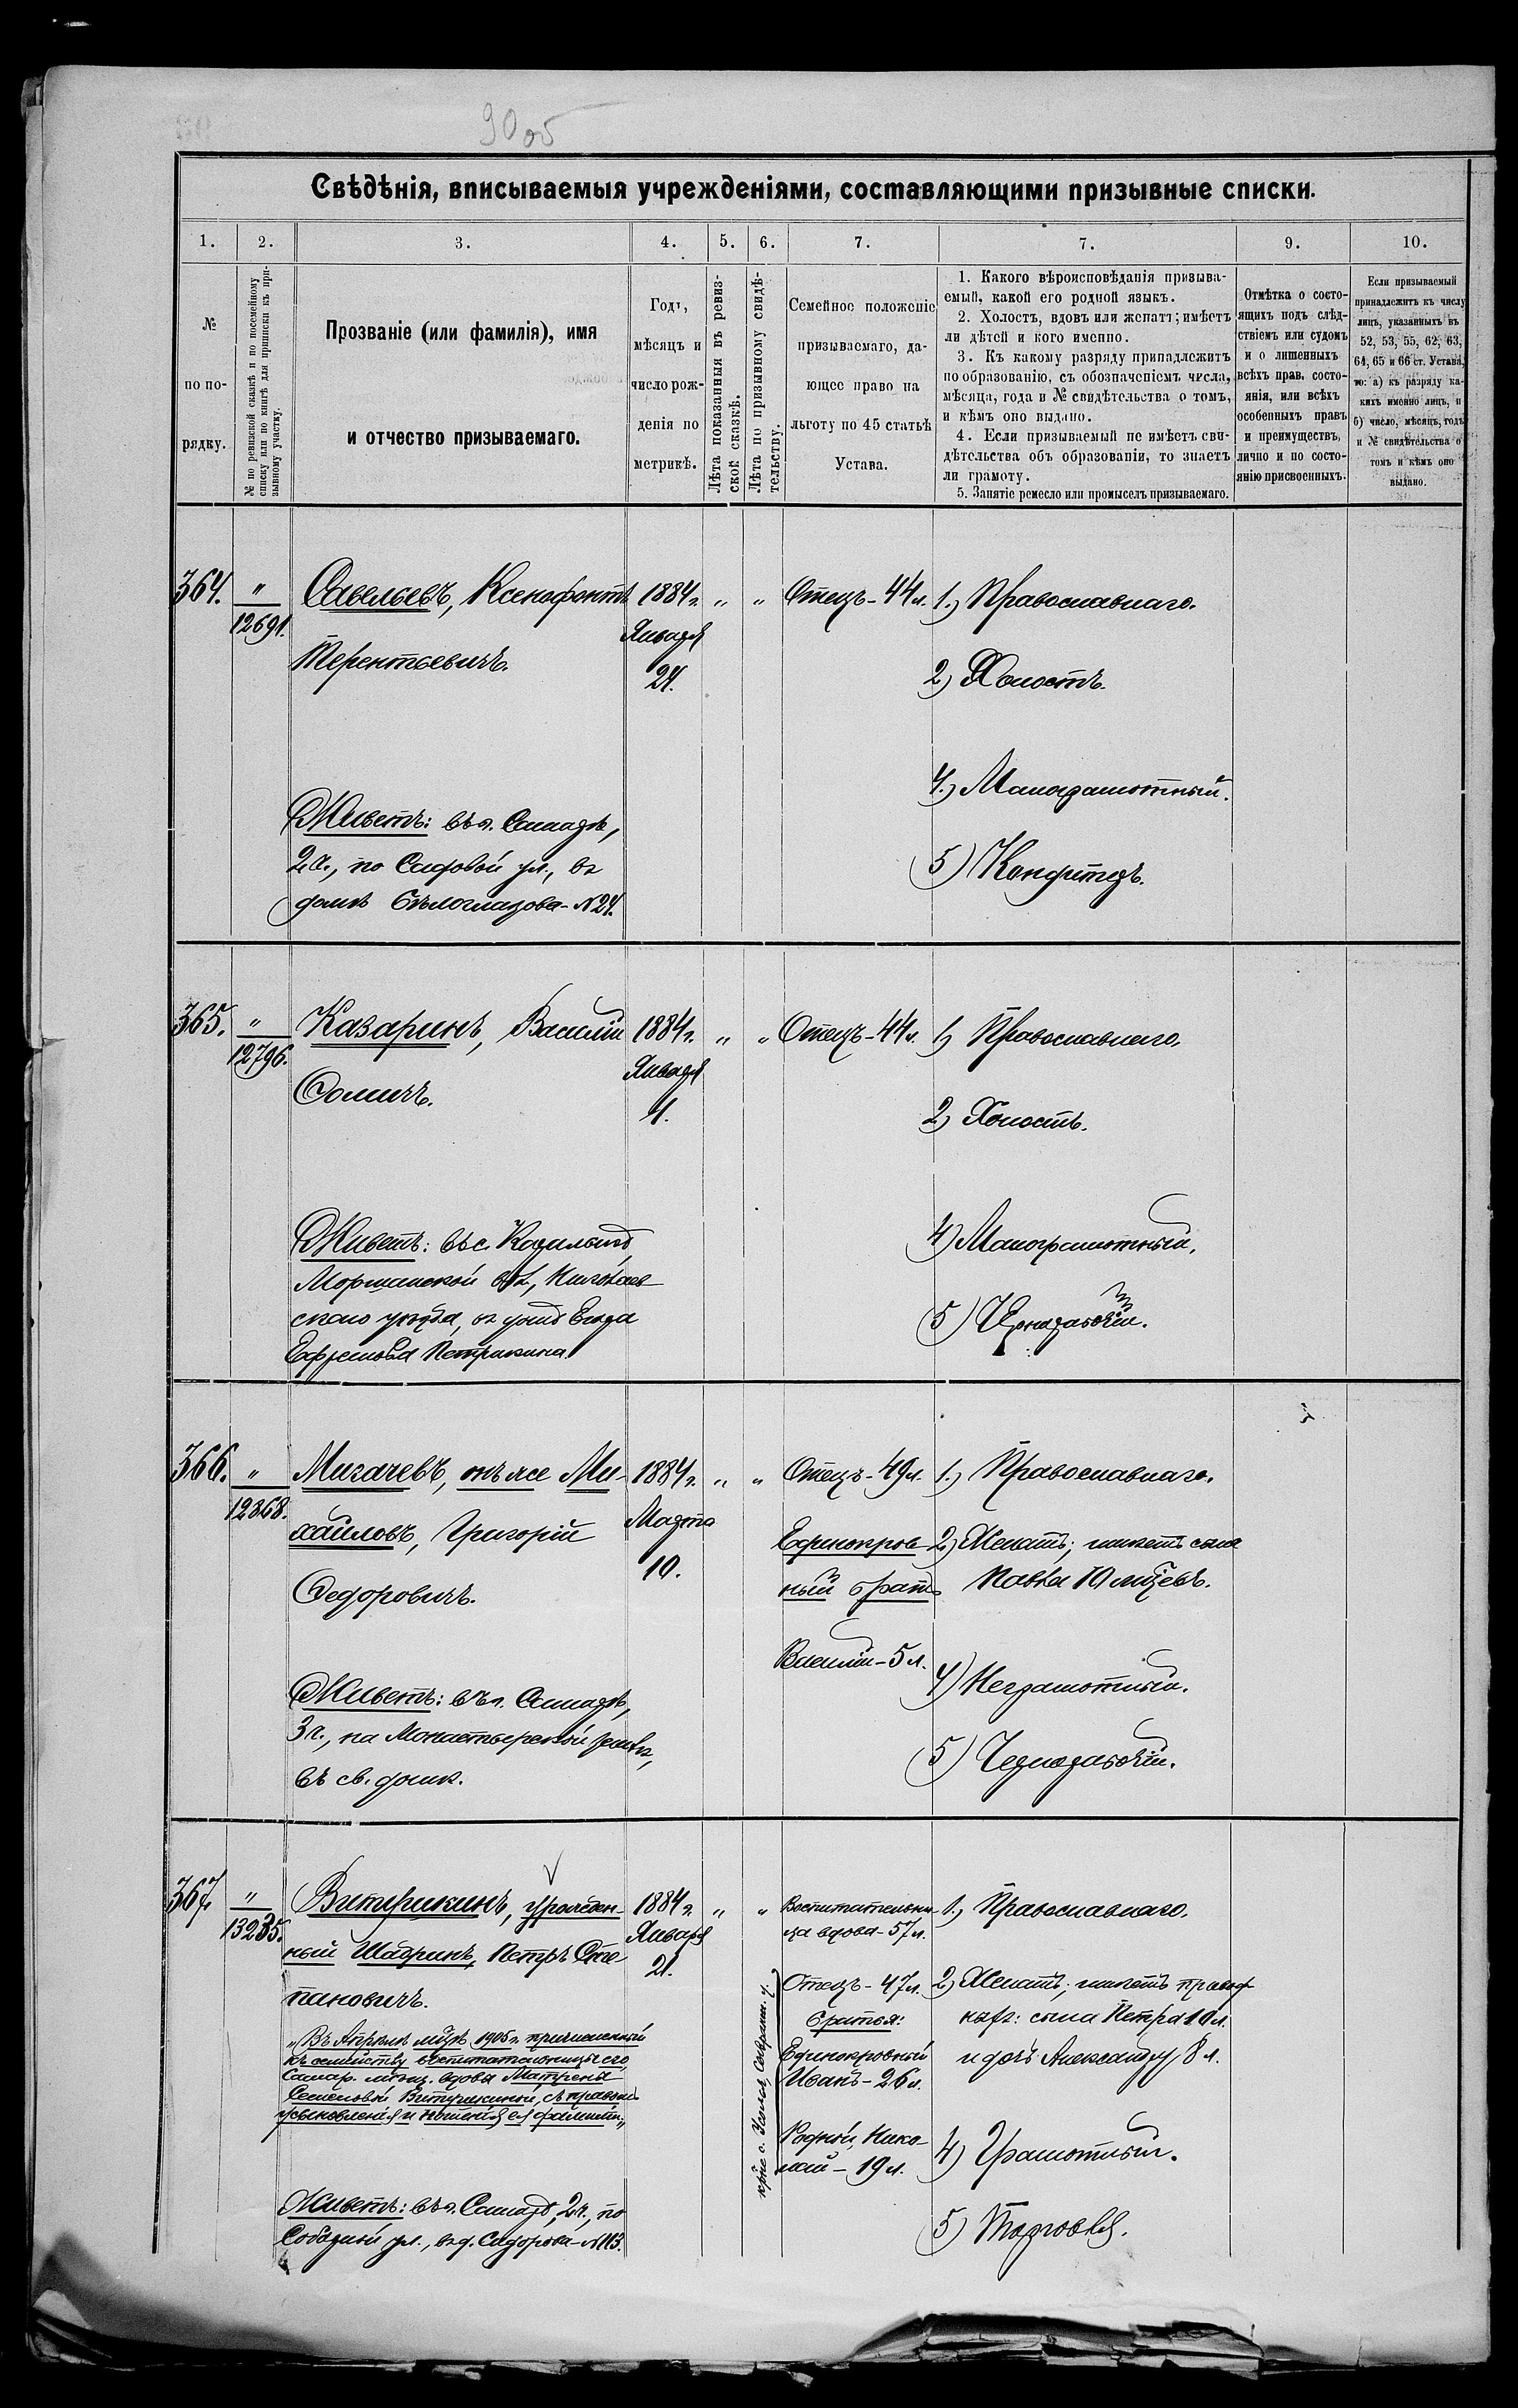 90 об
Свѣдѣнія, вписываемыя учрежденіями, составляющими призывные списки.
1. 2. 3. 4. 5. 6. 7. 7. 9. 10.
№
по по-
рядку.
№ по ревизской сказкѣ и по посемейному
списку или по книгѣ для приписки къ при-
зывному участку.
Прозваніе (или фамилія), имя
и отчество призываемаго.
Годъ,
мѣсяцъ и
число рож-
денія по
метрикѣ.
Лѣта показанныя въ ревиз-
ской сказкѣ.
Лѣта по призывному свидѣ-
тельству.
Семейное положеніе
призываемаго, да-
ющее право на
льготу по 45 статьѣ
Устава.
1. Какого вѣроисповѣданія призыва-
емый, какой его родной языкъ.
2. Холостъ, вдовъ или женатъ; имѣетъ
ли дѣтей и кого именно.
3. Къ какому разряду принадлежитъ
по образованію, съ обозначеніемъ числа,
мѣсяца, года и № свидѣтельства о томъ,
и кѣмъ оно выдано.
4. Если призываемый не имѣетъ сви-
дѣтельства объ образованіи, то знаетъ
ли грамоту.
5. Занятіе ремесло или промыселъ призываемаго.
Отмѣтка о состо-
ящихъ подъ слѣд-
ствіемъ или судомъ
и о лишенныхъ
всѣхъ прав. состо-
янія, или всѣхъ
особенныхъ правъ
и преимуществъ,
лично и по состо-
янію присвоенныхъ.
Если призываемый
принадлежитъ къ числу
лицъ, указанныхъ въ
52, 53, 55, 62, 63,
64, 65 и 66 ст. Устава,
то: а) къ разряду ка-
кихъ именно лицъ, и
б) число, мѣсяцъ, годъ
и № свидѣтельства о
томъ и кѣмъ оно
выдано.
364. " Савельевъ, Ксенофонтъ 1884 г. " " Отецъ - 44 л. 1.) Православнаго.
12691. Января
Терентьевичъ. 24. 2) Холостъ.
4.) Малограмотный.
Живетъ: въ г. Самарѣ,
2 ч., по Садовой ул., въ 5) Кондитеръ.
домѣ Бѣлоглазова - № 24.
365. " Казаринъ, Василій 1884 г. " " Отецъ - 44 л. 1) Православнаго.
12796. Января
Ѳомичъ. 4. 2) Холостъ.
Живетъ: въ с. 4) Малограмотный.
Моршанской вол., Николаев-
скаго уѣзда, въ домѣ Егора 5) Чернорабочій.
Ефремова Петрикина.
366. " Мигачевъ, онъ же Ми- 1884 г. " " Отецъ - 49 л. 1.) Православнаго.
12868. Марта
хайловъ, Григорій 10. Единокров- 2) Женатъ; имѣетъ сына
Ѳедоровичъ. ный братъ Павла 10 мѣсцевъ.
Василій - 5 л.
Живетъ: въ г. Самарѣ, 4) Неграмотный.
3 ч., на Монастырской
въ св. домѣ. 5) Чернорабочій.
367. " Витирикинъ, урожден- 1884 г. " " Воспитательни- 1.) Православнаго.
13235. Января ца вдова - 57 л.
ный Шадринъ, Петръ Сте- 21.
пановичъ. Отецъ - 47 л. 2) Женатъ; имѣетъ
Братья: сына Петра 10 л.
Единокровный и дочь Александру 8 л.
Иванъ - 26 л.
"Въ Апрѣлѣ мѣсцѣ 1905 г. причисленный
къ семейству воспитательницы его,
Самар. мѣщ. вдовы Матрены
Семеновой Витирикиной, съ правомъ
усыновленія и ношенія ея фамиліи"
Родной, Нико- 4) Грамотный.
лай - 19 л.
Живетъ: въ г. Самарѣ, 2 ч., по
Соборной ул., въ д. Сидорова - № 113. 5) Торговля.